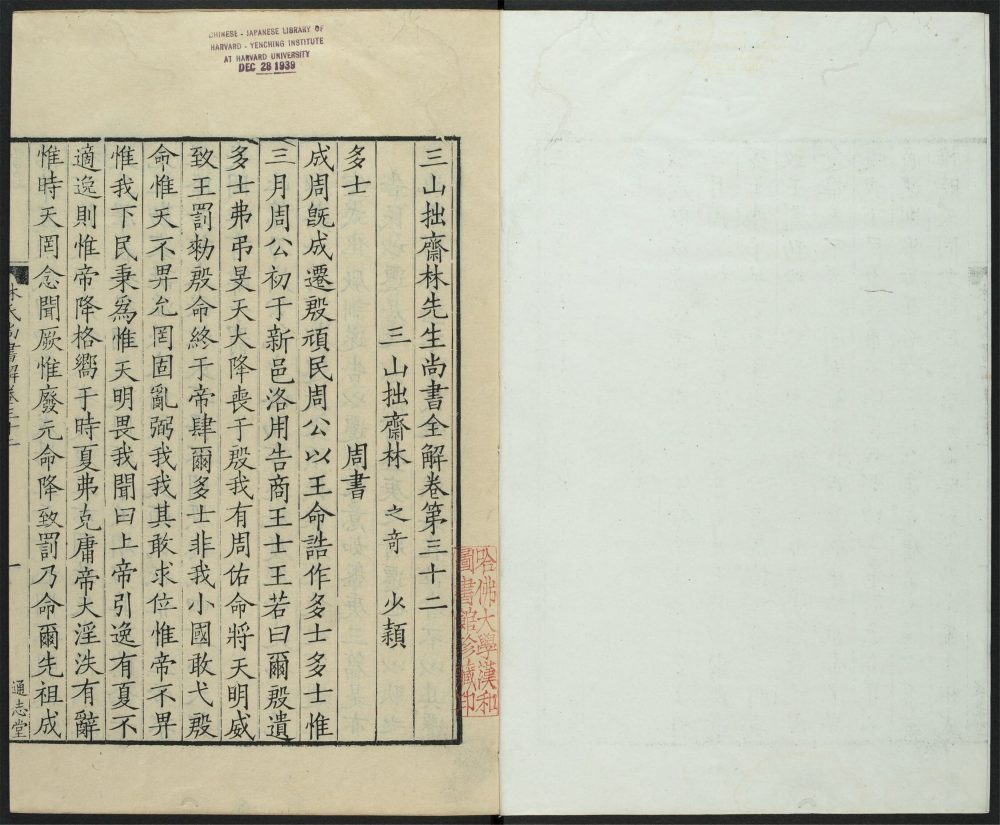 CHINESE - JAPANESE LIBRARY OF
HARVARD - YENCHING INSTITUTE
AT HARVARD UNIVERSITY
DEC 28 1939
三山拙齋林先生尚書全解卷第三十二
三山拙齋林 之奇 少穎
多士 周書
成周旣成遷殷頑民周公以王命誥作多士多士惟
三月周公初于新邑洛用告商王士王若曰爾殷遺
多士弗弔旻天大降喪于殷我有周佑命將天明威
致王罰勑殷命終于帝肆爾多士非我小國敢弋殷
命惟天不畀允罔固亂弼我我其敢求位惟帝不畀
惟我下民秉爲惟天明畏我聞曰上帝引逸有夏不
適逸則惟帝降格嚮于時夏弗克庸帝大淫泆有辭
惟時天罔念聞厥惟廢元命降致罰乃命爾先祖成
林氏尚書解卷三十二
一
通志堂
哈佛大學漢和
圖書館珍藏印